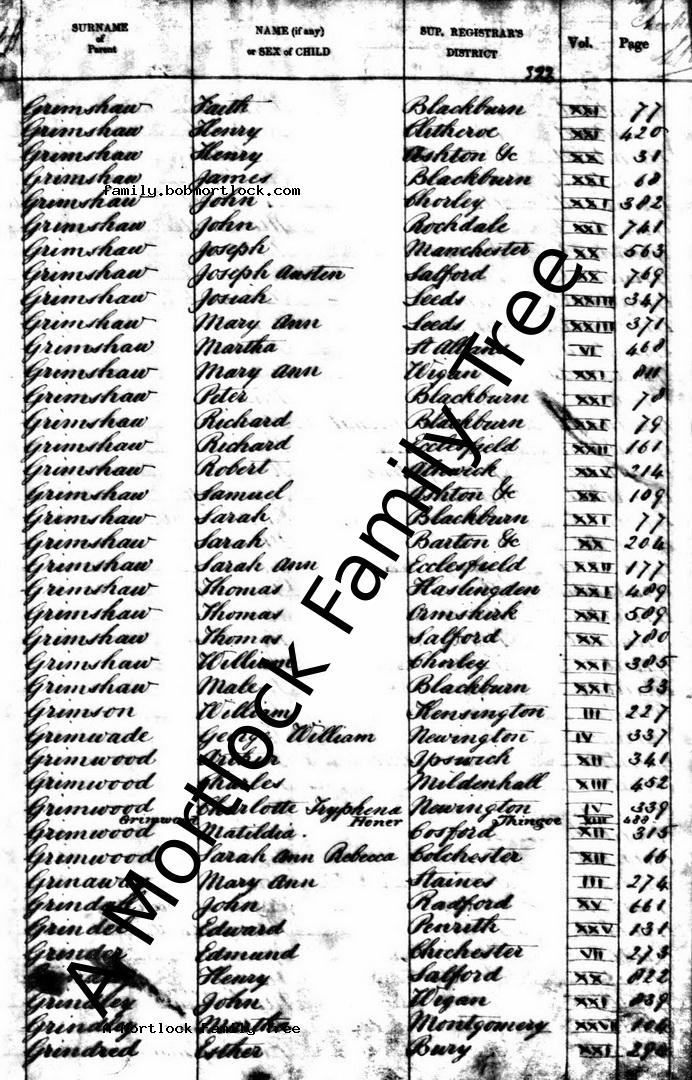 SURNAME of Parent NAME (if any) or SEX of CHILD SUP. REGISTRAR'S DISTRICT Vol. Page
322
Grimshaw Faith Blackburn XXI 77
Grimshaw Henry Clitheroe XXI 420
Grimshaw Henry Ashton &c XX 31
Grimshaw James Blackburn XXI 68
family.bobmortlock.com
Grimshaw John Chorley XXI 382
Grimshaw John Rochdale XXI 741
Grimshaw Joseph Manchester XX 563
Grimshaw Joseph Austen Salford XX 769
Grimshaw Josiah Leeds XXIII 347
Grimshaw Mary Ann Leeds XXIII 371
Grimshaw Martha St Albans VI 468
Grimshaw Mary Ann Wigan XXI 811
Grimshaw Peter Blackburn XXI 78
Grimshaw Richard Blackburn XXI 79
Grimshaw Richard Ecclesfield XXII 161
Grimshaw Robert Alnwick XXV 214
Grimshaw Samuel Ashton &c XX 109
Grimshaw Sarah Blackburn XXI 77
Grimshaw Sarah Barton &c XX 204
Grimshaw Sarah Ann Ecclesfield XXII 177
Grimshaw Thomas Haslingden XXI 489
Grimshaw Thomas Ormskirk XXI 589
Grimshaw Thomas Salford XX 780
Grimshaw William Chorley XXI 385
Grimshaw Male Blackburn XXI 33
Grimson William Kensington III 227
Grimwade George William Newington IV 337
Grimwood Arthur Ipswich XII 341
Grimwood Charles Mildenhall XIII 452
Grimwood Charlotte Tryphena Newington IV 339
Grimwood Honer Thingoe XIII 488
Grimwood Matildia. Cosford XII 315
Grimwood Sarah Ann Rebecca Colchester XII 66
Mary Ann Staines III 274
Grindal John Radford XV 661
Grindel Edward Penrith XXV 131
Grinder Edmund Chichester VII 273
Henry Salford XX 822
Grindley John Wigan XXI 839
Grindley Martha Montgomery XXVII 104
A Mortlock Family Tree
Grindred Esther Bury XXI
A Mortlock Family Tree